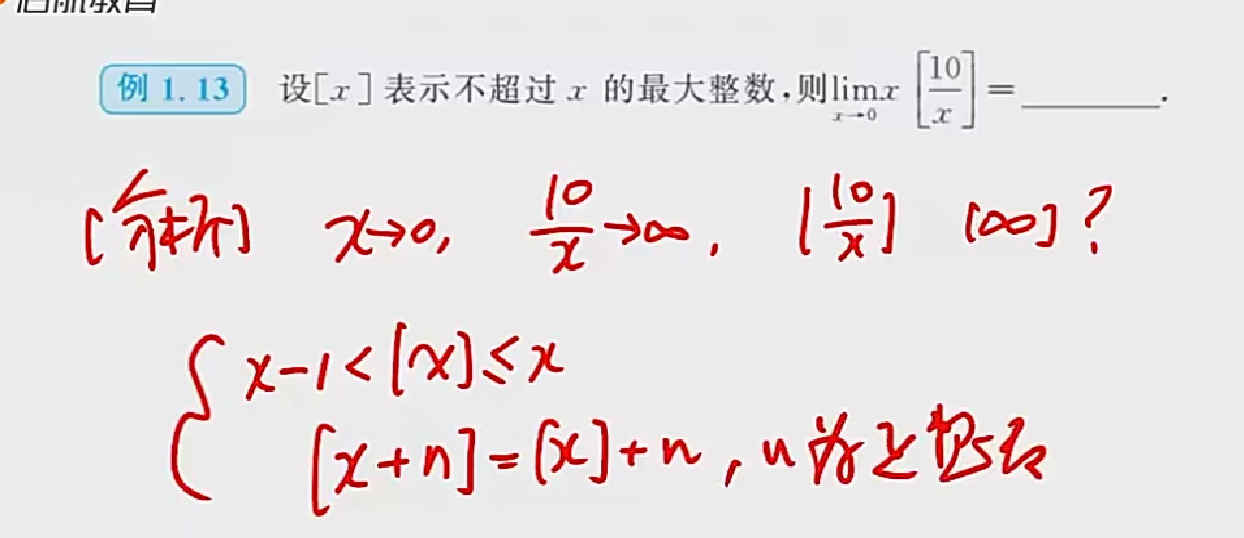 启航教育
例 1.13 设[x]表示不超过 x 的最大整数,则lim x→0 x [10/x] = ______.
[分析] x→0, 10/x→∞, [10/x] [∞]?
{ x-1<[x]≤x
[x+n]=[x]+n, n为正整数